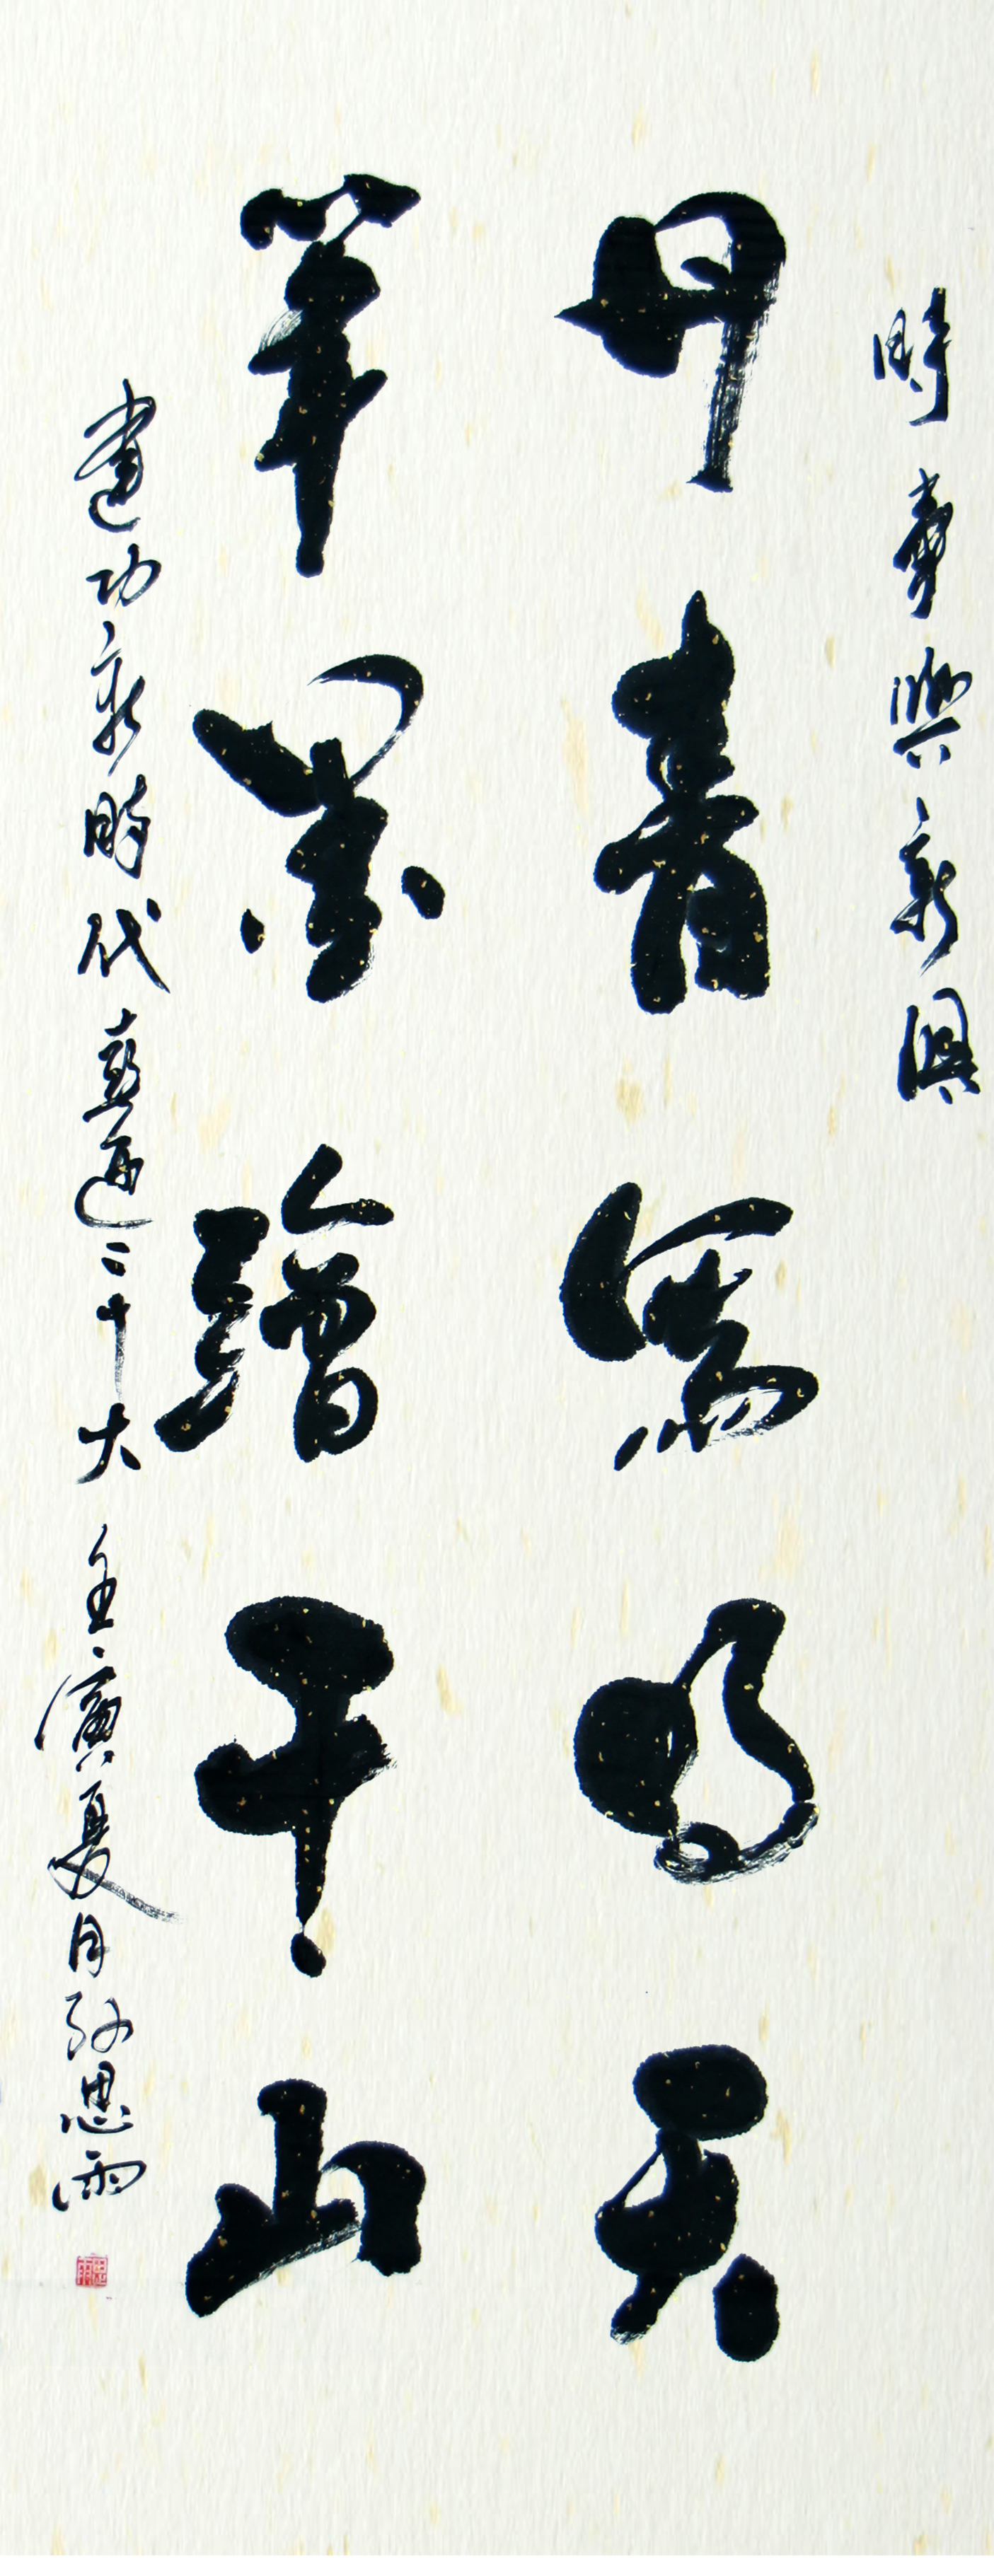 時章興新興
丹青寫明天
筆墨繪千山
建功新時代喜迎二十大 壬寅夏月孫思雨